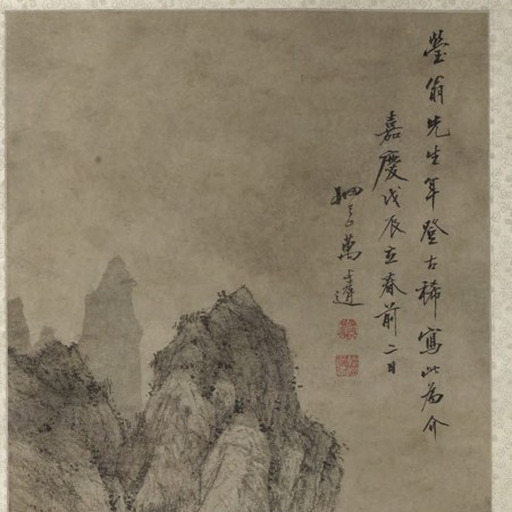 瑩翁先生年登古稀寫此為介
嘉慶戊辰立春前二日
萬